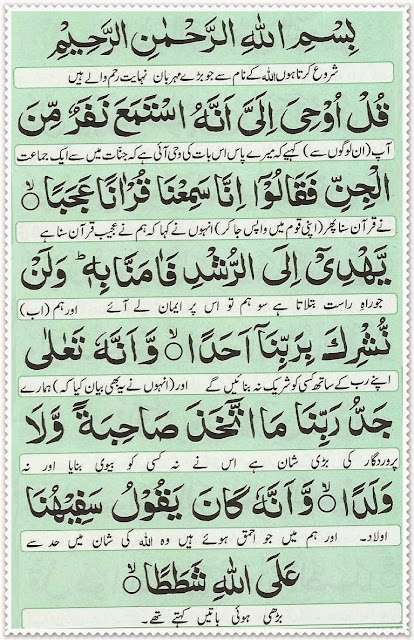 بِسْمِ اللهِ الرَّحْمٰنِ الرَّحِيْمِ
شروع کرتا ہوں اللہ کے نام سے جو بڑے مہربان نہایت رحم والے ہیں
قُلْ اُوْحِيَ اِلَيَّ اَنَّهُ اسْتَمَعَ نَفَرٌ مِّنَ
آپ (ان لوگوں سے) کہیے کہ میرے پاس اس بات کی وحی آئی ہے کہ جنات میں سے ایک جماعت
الْجِنِّ فَقَالُوْٓا اِنَّا سَمِعْنَا قُرْاٰنًا عَجَبًا ۙ
نے قرآن سنا پھر (اپنی قوم میں واپس جا کر) انہوں نے کہا کہ ہم نے عجیب قرآن سنا ہے
يَّهْدِيْٓ اِلَى الرُّشْدِ فَاٰمَنَّا بِهٖ ؕ وَلَنْ
جو راہِ راست بتلاتا ہے سو ہم تو اس پر ایمان لے آئے اور ہم (اب)
نُّشْرِكَ بِرَبِّنَآ اَحَدًا ۙ وَّاَنَّهٗ تَعٰلٰى
اپنے رب کے ساتھ کسی کو شریک نہ بنائیں گے اور (انہوں نے یہ بھی بیان کیا کہ) ہمارے
جَدُّ رَبِّنَا مَا اتَّخَذَ صَاحِبَةً وَّلَا
پروردگار کی بڑی شان ہے اس نے نہ کسی کو بیوی بنایا اور نہ
وَلَدًا ۙ وَّاَنَّهٗ كَانَ يَقُوْلُ سَفِيْهُنَا
اولاد۔ اور ہم میں جو احمق ہوئے ہیں وہ اللہ کی شان میں حد سے
عَلَى اللهِ شَطَطًا ۙ
بڑھی ہوئی باتیں کہتے تھے۔